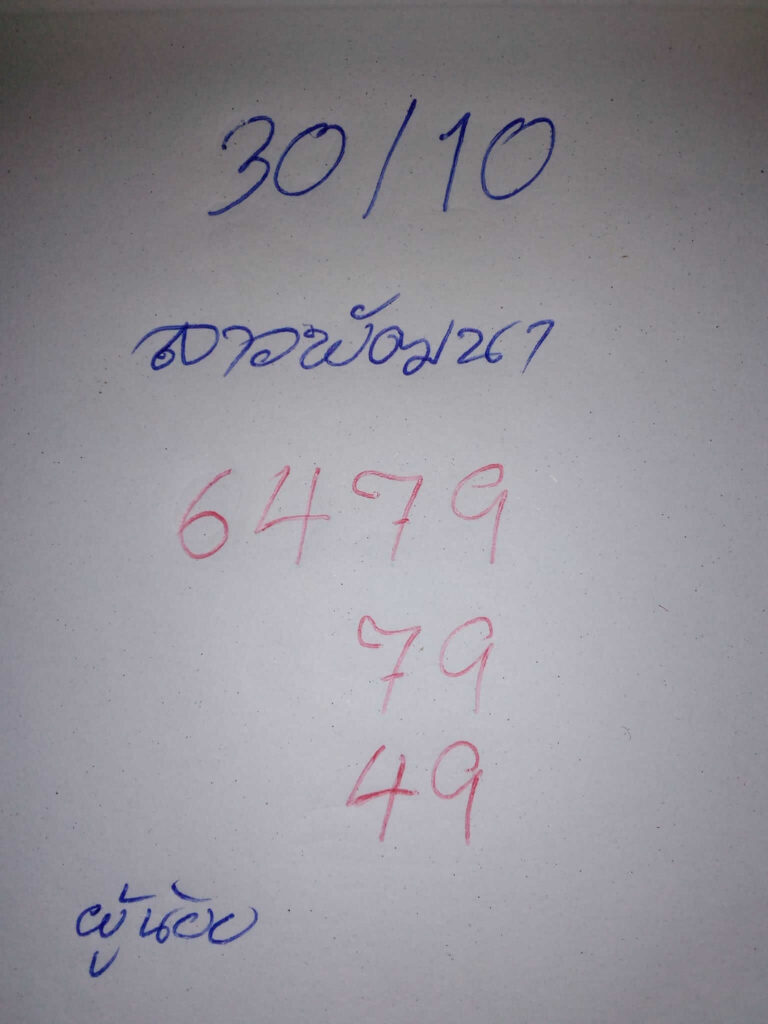 30/10
ลาวพัฒนา
6479
79
49
ผู้น้อย